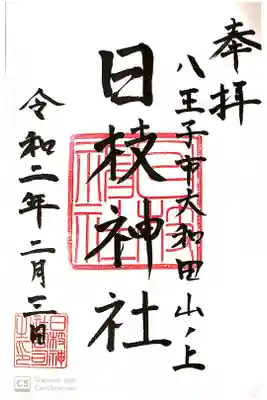 奉拝
八王子市大和田山ノ上
日枝神社
令和二年二月三日
日枝神社
CS